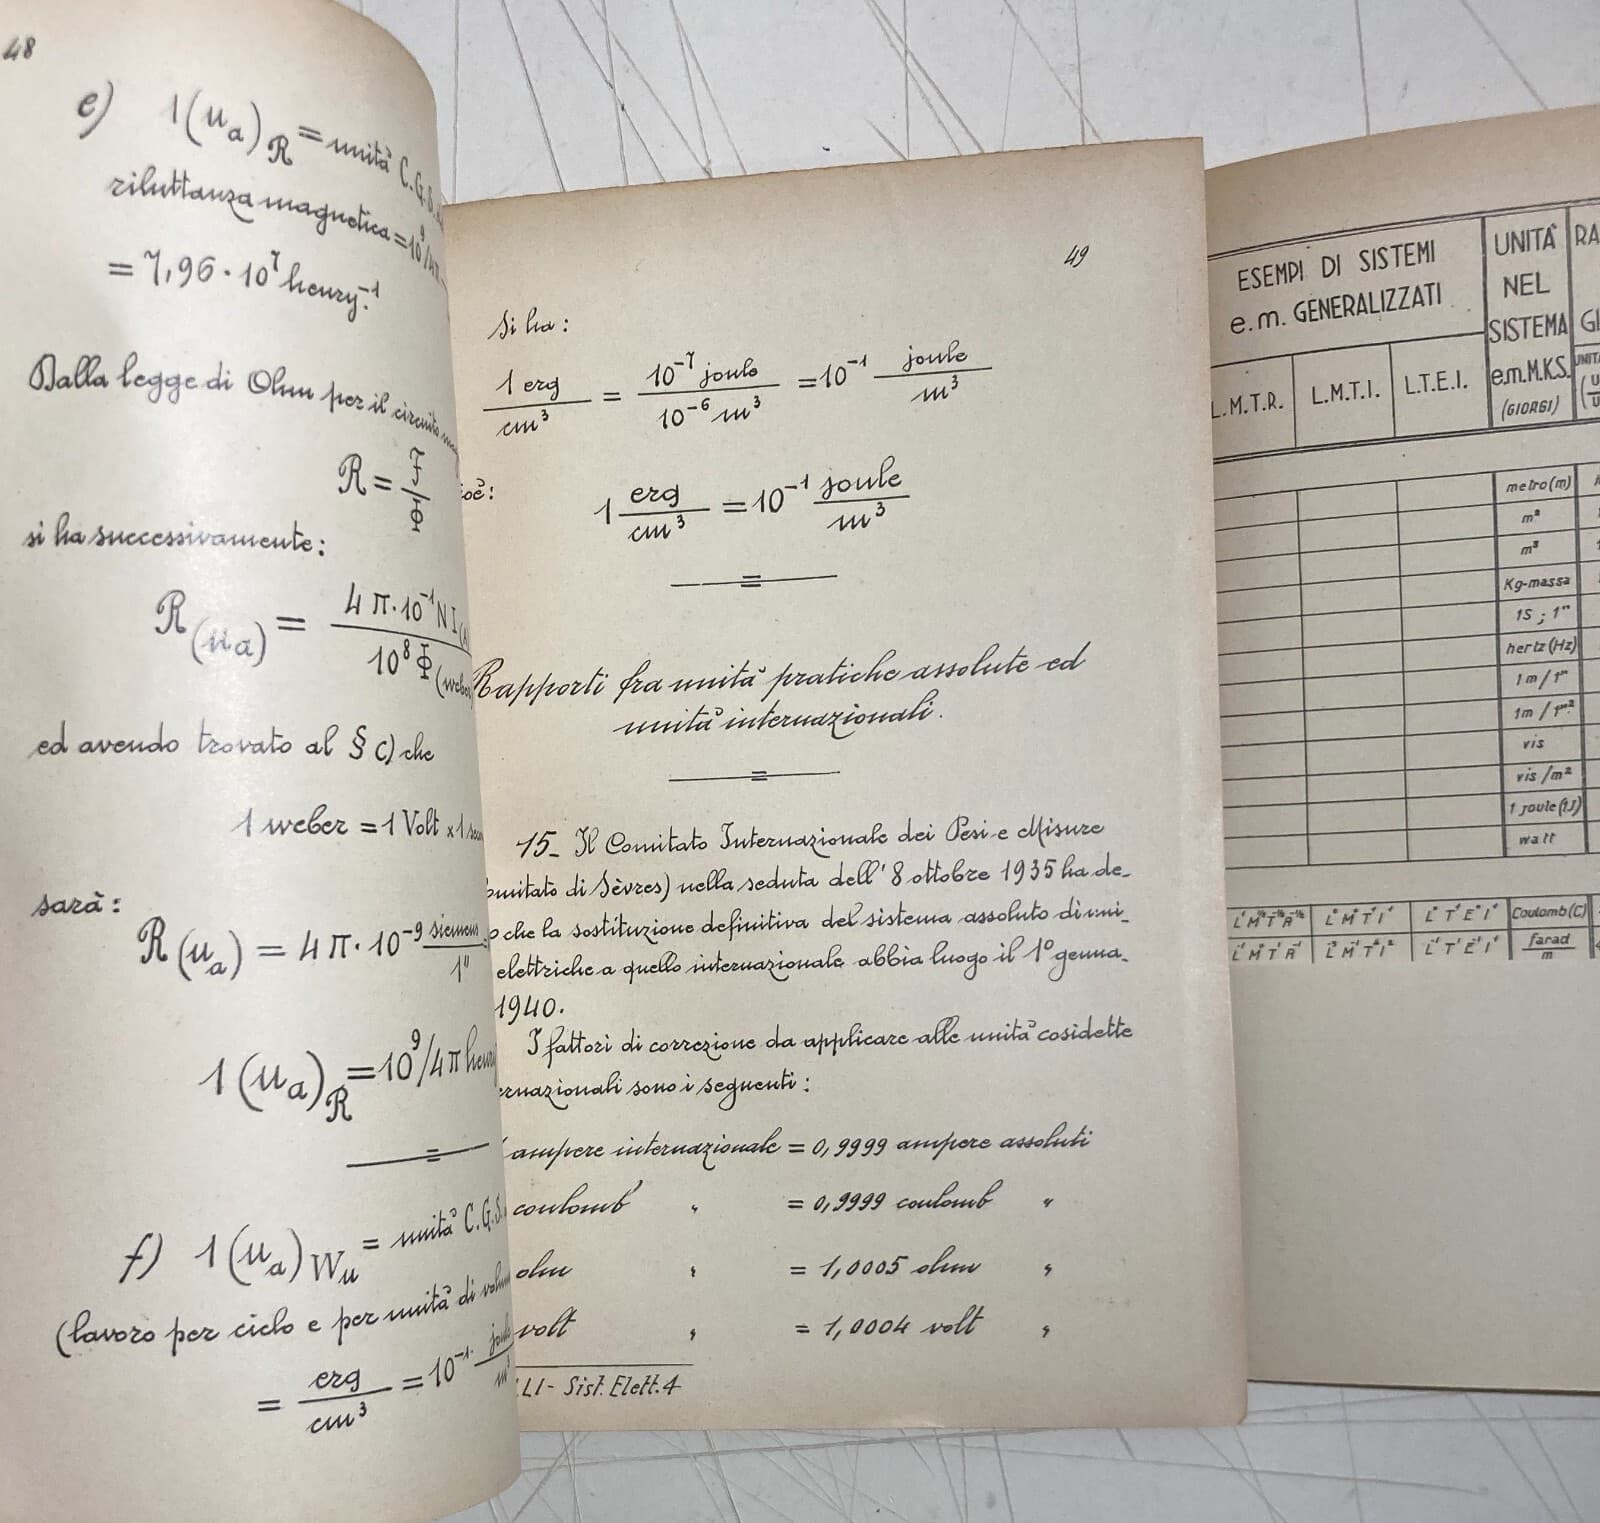 48
e) 1(ua)R = unità C.G.S.
riluttanza magnetica = 10⁹/4π
= 7,96 · 10⁷ henry⁻¹.
Dalla legge di Ohm per il circuito
R = F/Φ
si ha successivamente:
R(ua) = 4π·10⁻¹ N I / 10⁸ Φ (weber
ed avendo trovato al § c) che
1 weber = 1 Volt x 1
sarà:
R(ua) = 4π · 10⁻⁹ siemens / 1"
1(ua)R = 10⁹/4π henry
f) 1(ua)Wu = unità C.G.S.
(lavoro per ciclo e per unità di
= erg/cm³ = 10⁻¹ joule/m³
49
Si ha:
1 erg/cm³ = 10⁻⁷ joule/10⁻⁶ m³ = 10⁻¹ joule/m³
ioè:
1 erg/cm³ = 10⁻¹ joule/m³
Rapporti fra unità pratiche assolute ed
unità internazionali.
15_ Il Comitato Internazionale dei Pesi e Misure
omitato di Sèvres) nella seduta dell' 8 ottobre 1935 ha de_
o che la sostituzione definitiva del sistema assoluto di uni_
elettriche a quello internazionale abbia luogo il 1° genna_
1940.
I fattori di correzione da applicare alle unità cosidette
ernazionali sono i seguenti:
ampere internazionale = 0,9999 ampere assoluti
coulomb " = 0,9999 coulomb "
ohm " = 1,0005 ohm "
volt " = 1,0004 volt "
LLI - Sist. Elett. 4
ESEMPI DI SISTEMI
e.m. GENERALIZZATI
L.M.T.R. L.M.T.I. L.T.E.I.
UNITÀ
NEL
SISTEMA
e.m. M.K.S.
(GIORGI)
RA
GI
metro (m)
m²
m³
Kg-massa
1s ; 1"
hertz (Hz)
1 m / 1"
1m / 1"²
vis
vis/m²
1 joule (1J)
watt
Coulomb (C)
farad/m